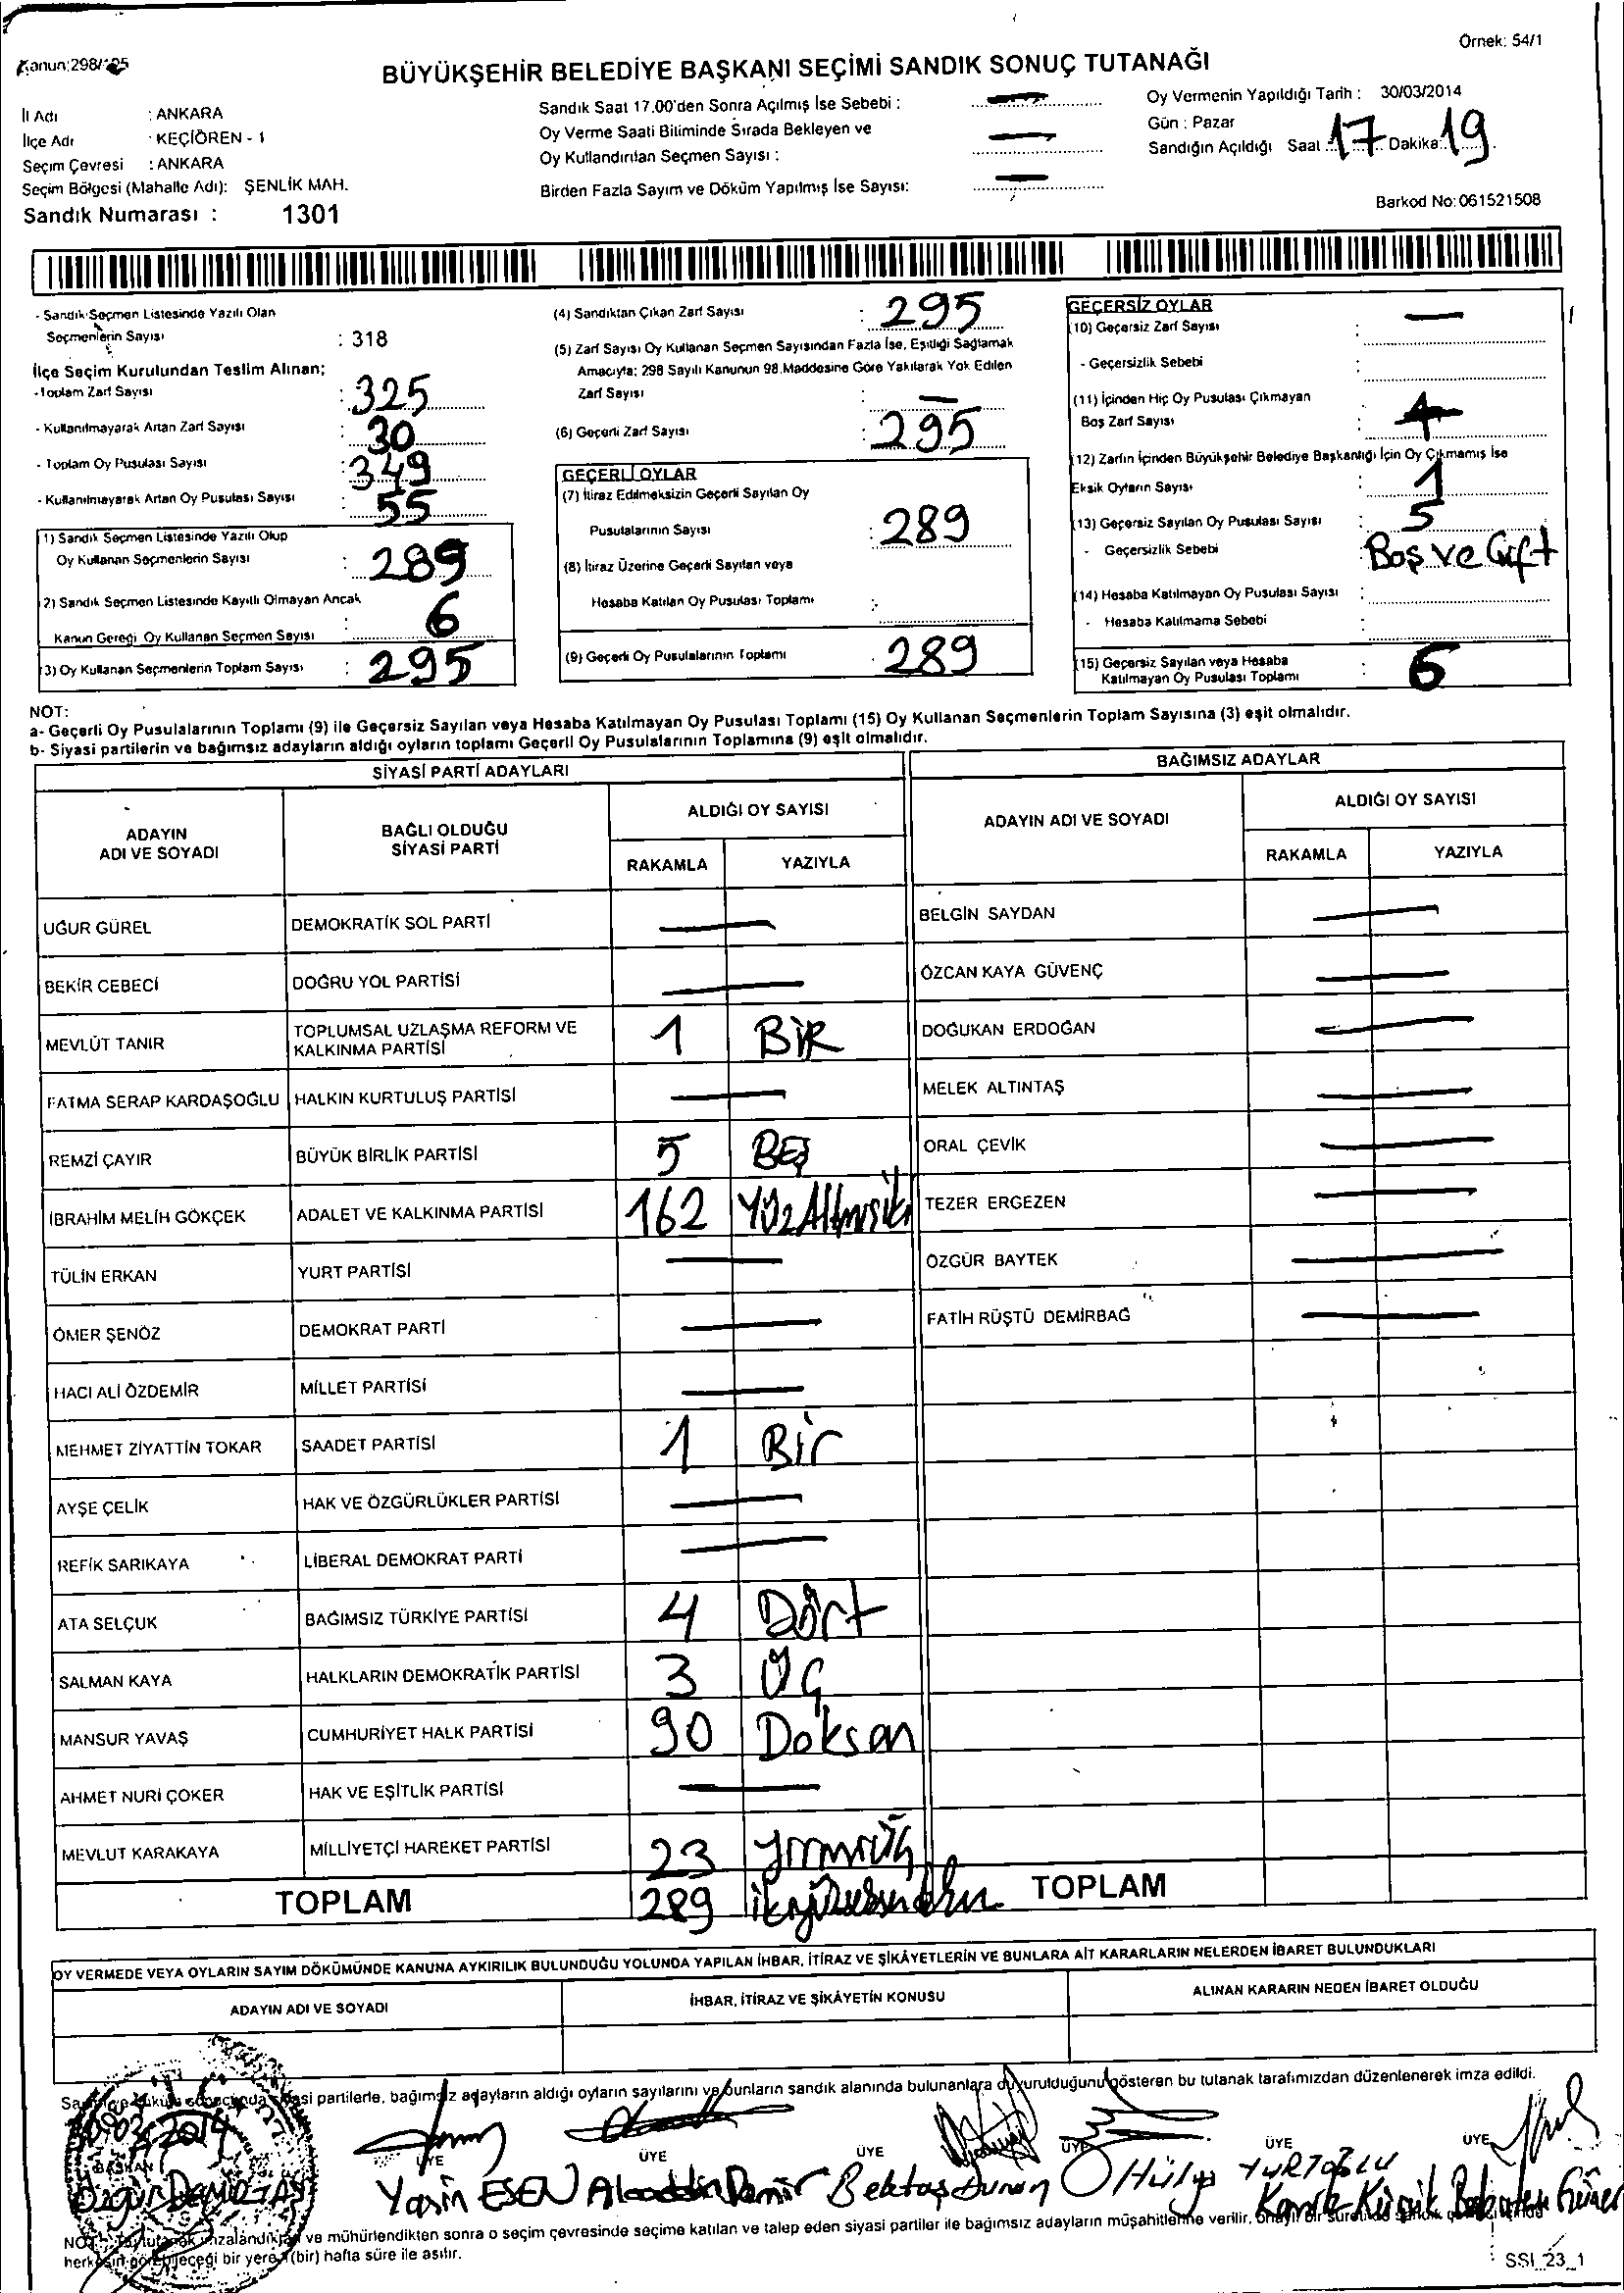 Kanun:298/105
Örnek: 54/1
BÜYÜKŞEHİR BELEDİYE BAŞKANI SEÇİMİ SANDIK SONUÇ TUTANAĞI
İl Adı : ANKARA
İlçe Adı : KEÇİÖREN - 1
Seçim Çevresi : ANKARA
Seçim Bölgesi (Mahalle Adı): ŞENLİK MAH.
Sandık Numarası : 1301
Sandık Saat 17.00'den Sonra Açılmış İse Sebebi : —
Oy Verme Saati Bitiminde Sırada Bekleyen ve
Oy Kullandırılan Seçmen Sayısı : —
Birden Fazla Sayım ve Döküm Yapılmış İse Sayısı: —
Oy Vermenin Yapıldığı Tarih : 30/03/2014
Gün : Pazar
Sandığın Açıldığı Saat : 17 Dakika: 19
Barkod No: 061521508
- Sandık Seçmen Listesinde Yazılı Olan
Seçmenlerin Sayısı : 318
İlçe Seçim Kurulundan Teslim Alınan;
-Toplam Zarf Sayısı : 325
- Kullanılmayarak Artan Zarf Sayısı : 30
- Toplam Oy Pusulası Sayısı : 349
- Kullanılmayarak Artan Oy Pusulası Sayısı : 55
1) Sandık Seçmen Listesinde Yazılı Olup
Oy Kullanan Seçmenlerin Sayısı : 289
2) Sandık Seçmen Listesinde Kayıtlı Olmayan Ancak
Kanun Gereği Oy Kullanan Seçmen Sayısı : 6
3) Oy Kullanan Seçmenlerin Toplam Sayısı : 295
(4) Sandıktan Çıkan Zarf Sayısı : 295
(5) Zarf Sayısı Oy Kullanan Seçmen Sayısından Fazla İse, Eşitliği Sağlamak
Amacıyla; 298 Sayılı Kanunun 98.Maddesine Göre Yakılarak Yok Edilen
Zarf Sayısı : —
(6) Geçerli Zarf Sayısı : 295
GEÇERLİ OYLAR
(7) İtiraz Edilmeksizin Geçerli Sayılan Oy
Pusulalarının Sayısı : 289
(8) İtiraz Üzerine Geçerli Sayılan veya
Hesaba Katılan Oy Pusulası Toplamı :
(9) Geçerli Oy Pusulalarının Toplamı : 289
GEÇERSİZ OYLAR
(10) Geçersiz Zarf Sayısı : —
- Geçersizlik Sebebi :
(11) İçinden Hiç Oy Pusulası Çıkmayan
Boş Zarf Sayısı :
(12) Zarfın İçinden Büyükşehir Belediye Başkanlığı İçin Oy Çıkmamış İse
Eksik Oyların Sayısı : 1
(13) Geçersiz Sayılan Oy Pusulası Sayısı : 5
- Geçersizlik Sebebi : Boş ve Çift
(14) Hesaba Katılmayan Oy Pusulası Sayısı :
- Hesaba Katılmama Sebebi :
(15) Geçersiz Sayılan veya Hesaba
Katılmayan Oy Pusulası Toplamı : 6
NOT:
a- Geçerli Oy Pusulalarının Toplamı (9) ile Geçersiz Sayılan veya Hesaba Katılmayan Oy Pusulası Toplamı (15) Oy Kullanan Seçmenlerin Toplam Sayısına (3) eşit olmalıdır.
b- Siyasi partilerin ve bağımsız adayların aldığı oyların toplamı Geçerli Oy Pusulalarının Toplamına (9) eşit olmalıdır.
SİYASİ PARTİ ADAYLARI
ADAYIN ADI VE SOYADI BAĞLI OLDUĞU SİYASİ PARTİ ALDIĞI OY SAYISI RAKAMLA YAZIYLA
UĞUR GÜREL DEMOKRATİK SOL PARTİ —
BEKİR CEBECİ DOĞRU YOL PARTİSİ —
MEVLÜT TANIR TOPLUMSAL UZLAŞMA REFORM VE KALKINMA PARTİSİ 1 BİR
FATMA SERAP KARDAŞOĞLU HALKIN KURTULUŞ PARTİSİ —
REMZİ ÇAYIR BÜYÜK BİRLİK PARTİSİ 5 BEŞ
İBRAHİM MELİH GÖKÇEK ADALET VE KALKINMA PARTİSİ 162 YüzAltmışiki
TÜLİN ERKAN YURT PARTİSİ —
ÖMER ŞENÖZ DEMOKRAT PARTİ —
HACI ALİ ÖZDEMİR MİLLET PARTİSİ —
MEHMET ZİYATTİN TOKAR SAADET PARTİSİ 1 Bir
AYŞE ÇELİK HAK VE ÖZGÜRLÜKLER PARTİSİ —
REFİK SARIKAYA LİBERAL DEMOKRAT PARTİ —
ATA SELÇUK BAĞIMSIZ TÜRKİYE PARTİSİ 4 Dört
SALMAN KAYA HALKLARIN DEMOKRATİK PARTİSİ 3 Üç
MANSUR YAVAŞ CUMHURİYET HALK PARTİSİ 90 Doksan
AHMET NURİ ÇOKER HAK VE EŞİTLİK PARTİSİ —
MEVLUT KARAKAYA MİLLİYETÇİ HAREKET PARTİSİ 23 yirmiüç
TOPLAM 289
BAĞIMSIZ ADAYLAR
ADAYIN ADI VE SOYADI ALDIĞI OY SAYISI RAKAMLA YAZIYLA
BELGİN SAYDAN —
ÖZCAN KAYA GÜVENÇ —
DOĞUKAN ERDOĞAN —
MELEK ALTINTAŞ —
ORAL ÇEVİK —
TEZER ERGEZEN —
ÖZGÜR BAYTEK —
FATİH RÜŞTÜ DEMİRBAĞ —
TOPLAM
OY VERMEDE VEYA OYLARIN SAYIM DÖKÜMÜNDE KANUNA AYKIRILIK BULUNDUĞU YOLUNDA YAPILAN İHBAR, İTİRAZ VE ŞİKÂYETLERİN VE BUNLARA AİT KARARLARIN NELERDEN İBARET BULUNDUKLARI
ADAYIN ADI VE SOYADI İHBAR, İTİRAZ VE ŞİKÂYETİN KONUSU ALINAN KARARIN NEDEN İBARET OLDUĞU
siyasi partilerle, bağımsız adayların aldığı oyların sayılarını ve bunların sandık alanında bulunanlara duyurulduğunu gösteren bu tutanak tarafımızdan düzenlenerek imza edildi.
30.03.2014
BAŞKAN ÜYE ÜYE ÜYE ÜYE ÜYE ÜYE
Özgür DEMİRTAŞ Yasin ESEN Alaaddin Demir Bektaş Duran Hülya YURTOĞLU Kamile Küçük
ve mühürlendikten sonra o seçim çevresinde seçime katılan ve talep eden siyasi partiler ile bağımsız adayların müşahitlerine verilir,
herkesin görebileceği bir yere 1 (bir) hafta süre ile asılır.
SSI_23_1